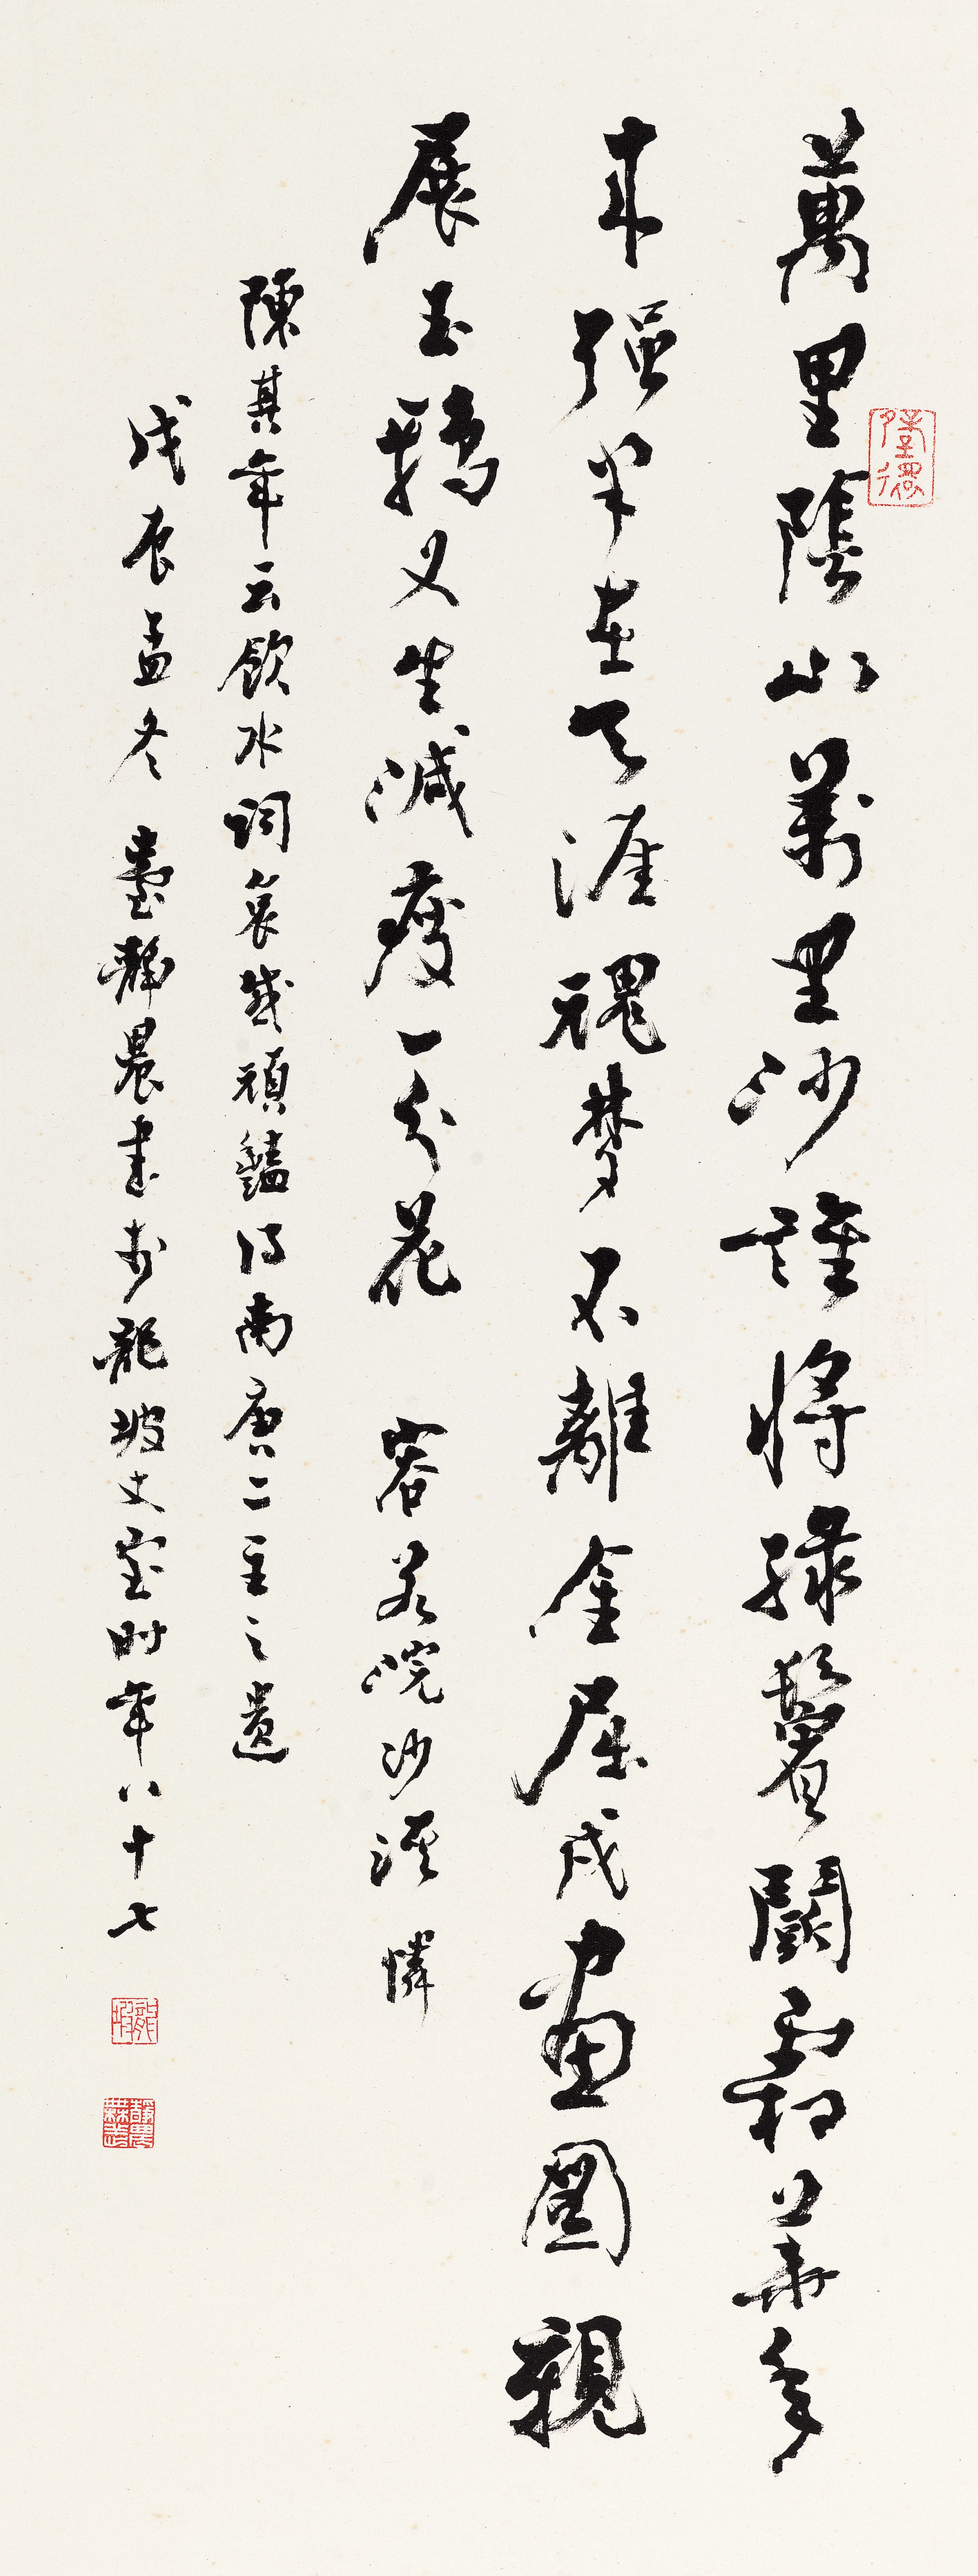 萬里陰山萬里沙誰將綠鬢鬬霜華年
來强半在天涯魂夢不離金屈戌畫圖親
展玉鴉叉生減瘦一分花 容若浣沙溪 憐
陳其年云飲水詞哀感頑豔得南唐二主之遺
戊辰孟冬 臺靜農書於龍坡丈室時年八十七
靜農無恙